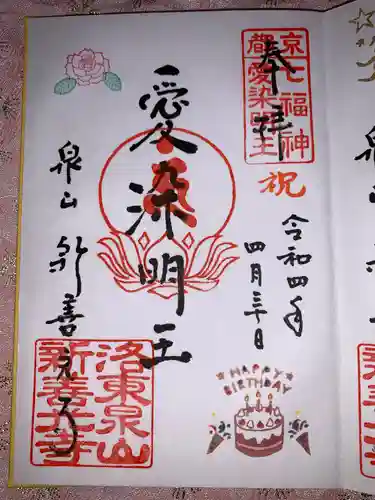 京都
七福神
愛染明王
奉拝
祝
令和四年
四月三十日
愛染明王
泉山 新善光寺
洛東泉山
新善光寺
HAPPY
BIRTHDAY